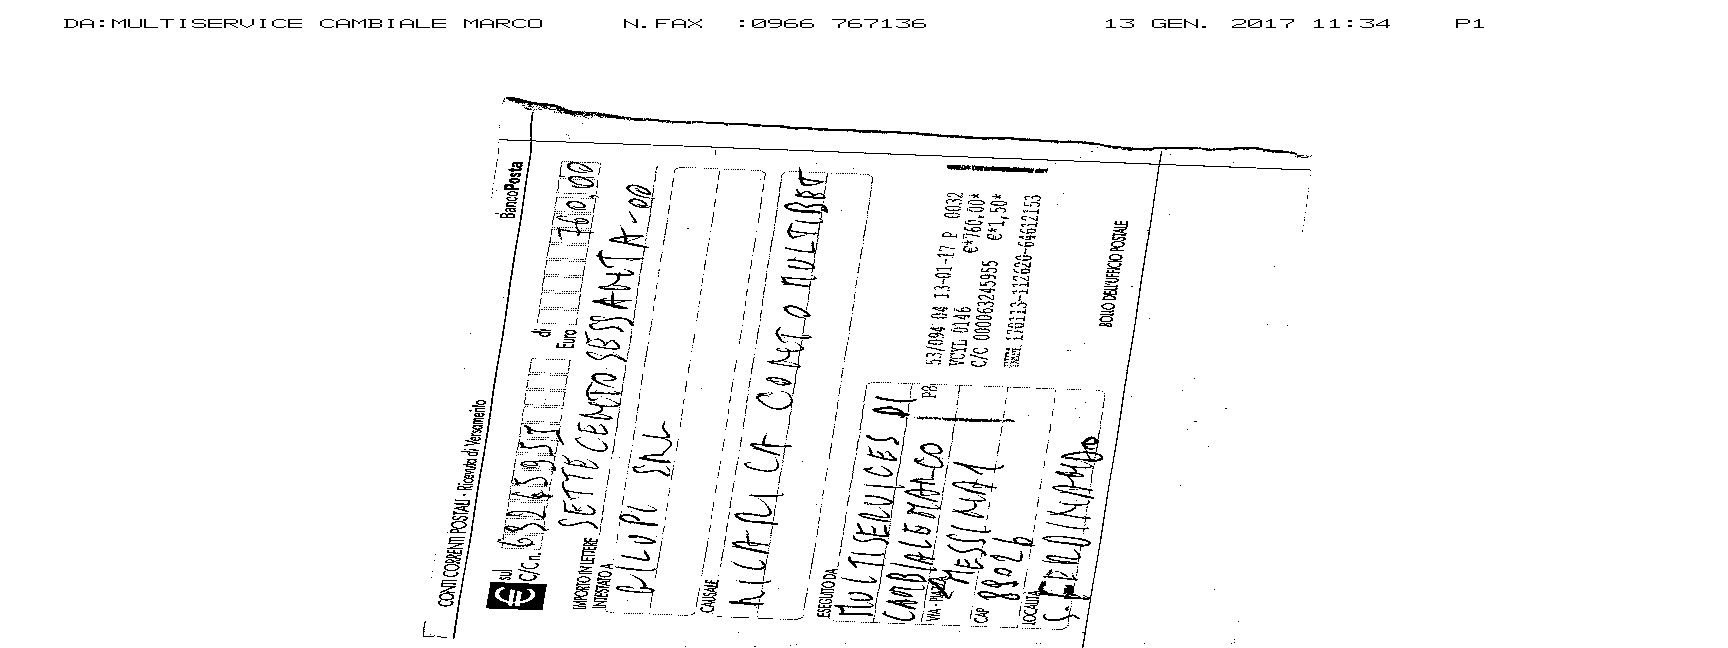 DA:MULTISERVICE CAMBIALE MARCO N.FAX :0966 767136 13 GEN. 2017 11:34 P1
CONTI CORRENTI POSTALI - Ricevuta di Versamento
BancoPosta
€ sul C/C n. 63245955 di Euro 760,00
IMPORTO IN LETTERE SETTECENTO SESSANTA-00
INTESTATO A
PLUPI SRL
CAUSALE
RICARICA CONTO MULTIBBT
ESEGUITO DA
MULTISERVICES DI
CAMBIALE MARCO
VIA - PIAZZA MESSINA 1
CAP 89026
LOCALITÀ
S. FERDINANDO
53/094 04 13-01-17 P 0032
VCYL 0146 €*760,00*
C/C 000063245955 €*1,50*
170113-112620-64612153
BOLLO DELL'UFFICIO POSTALE